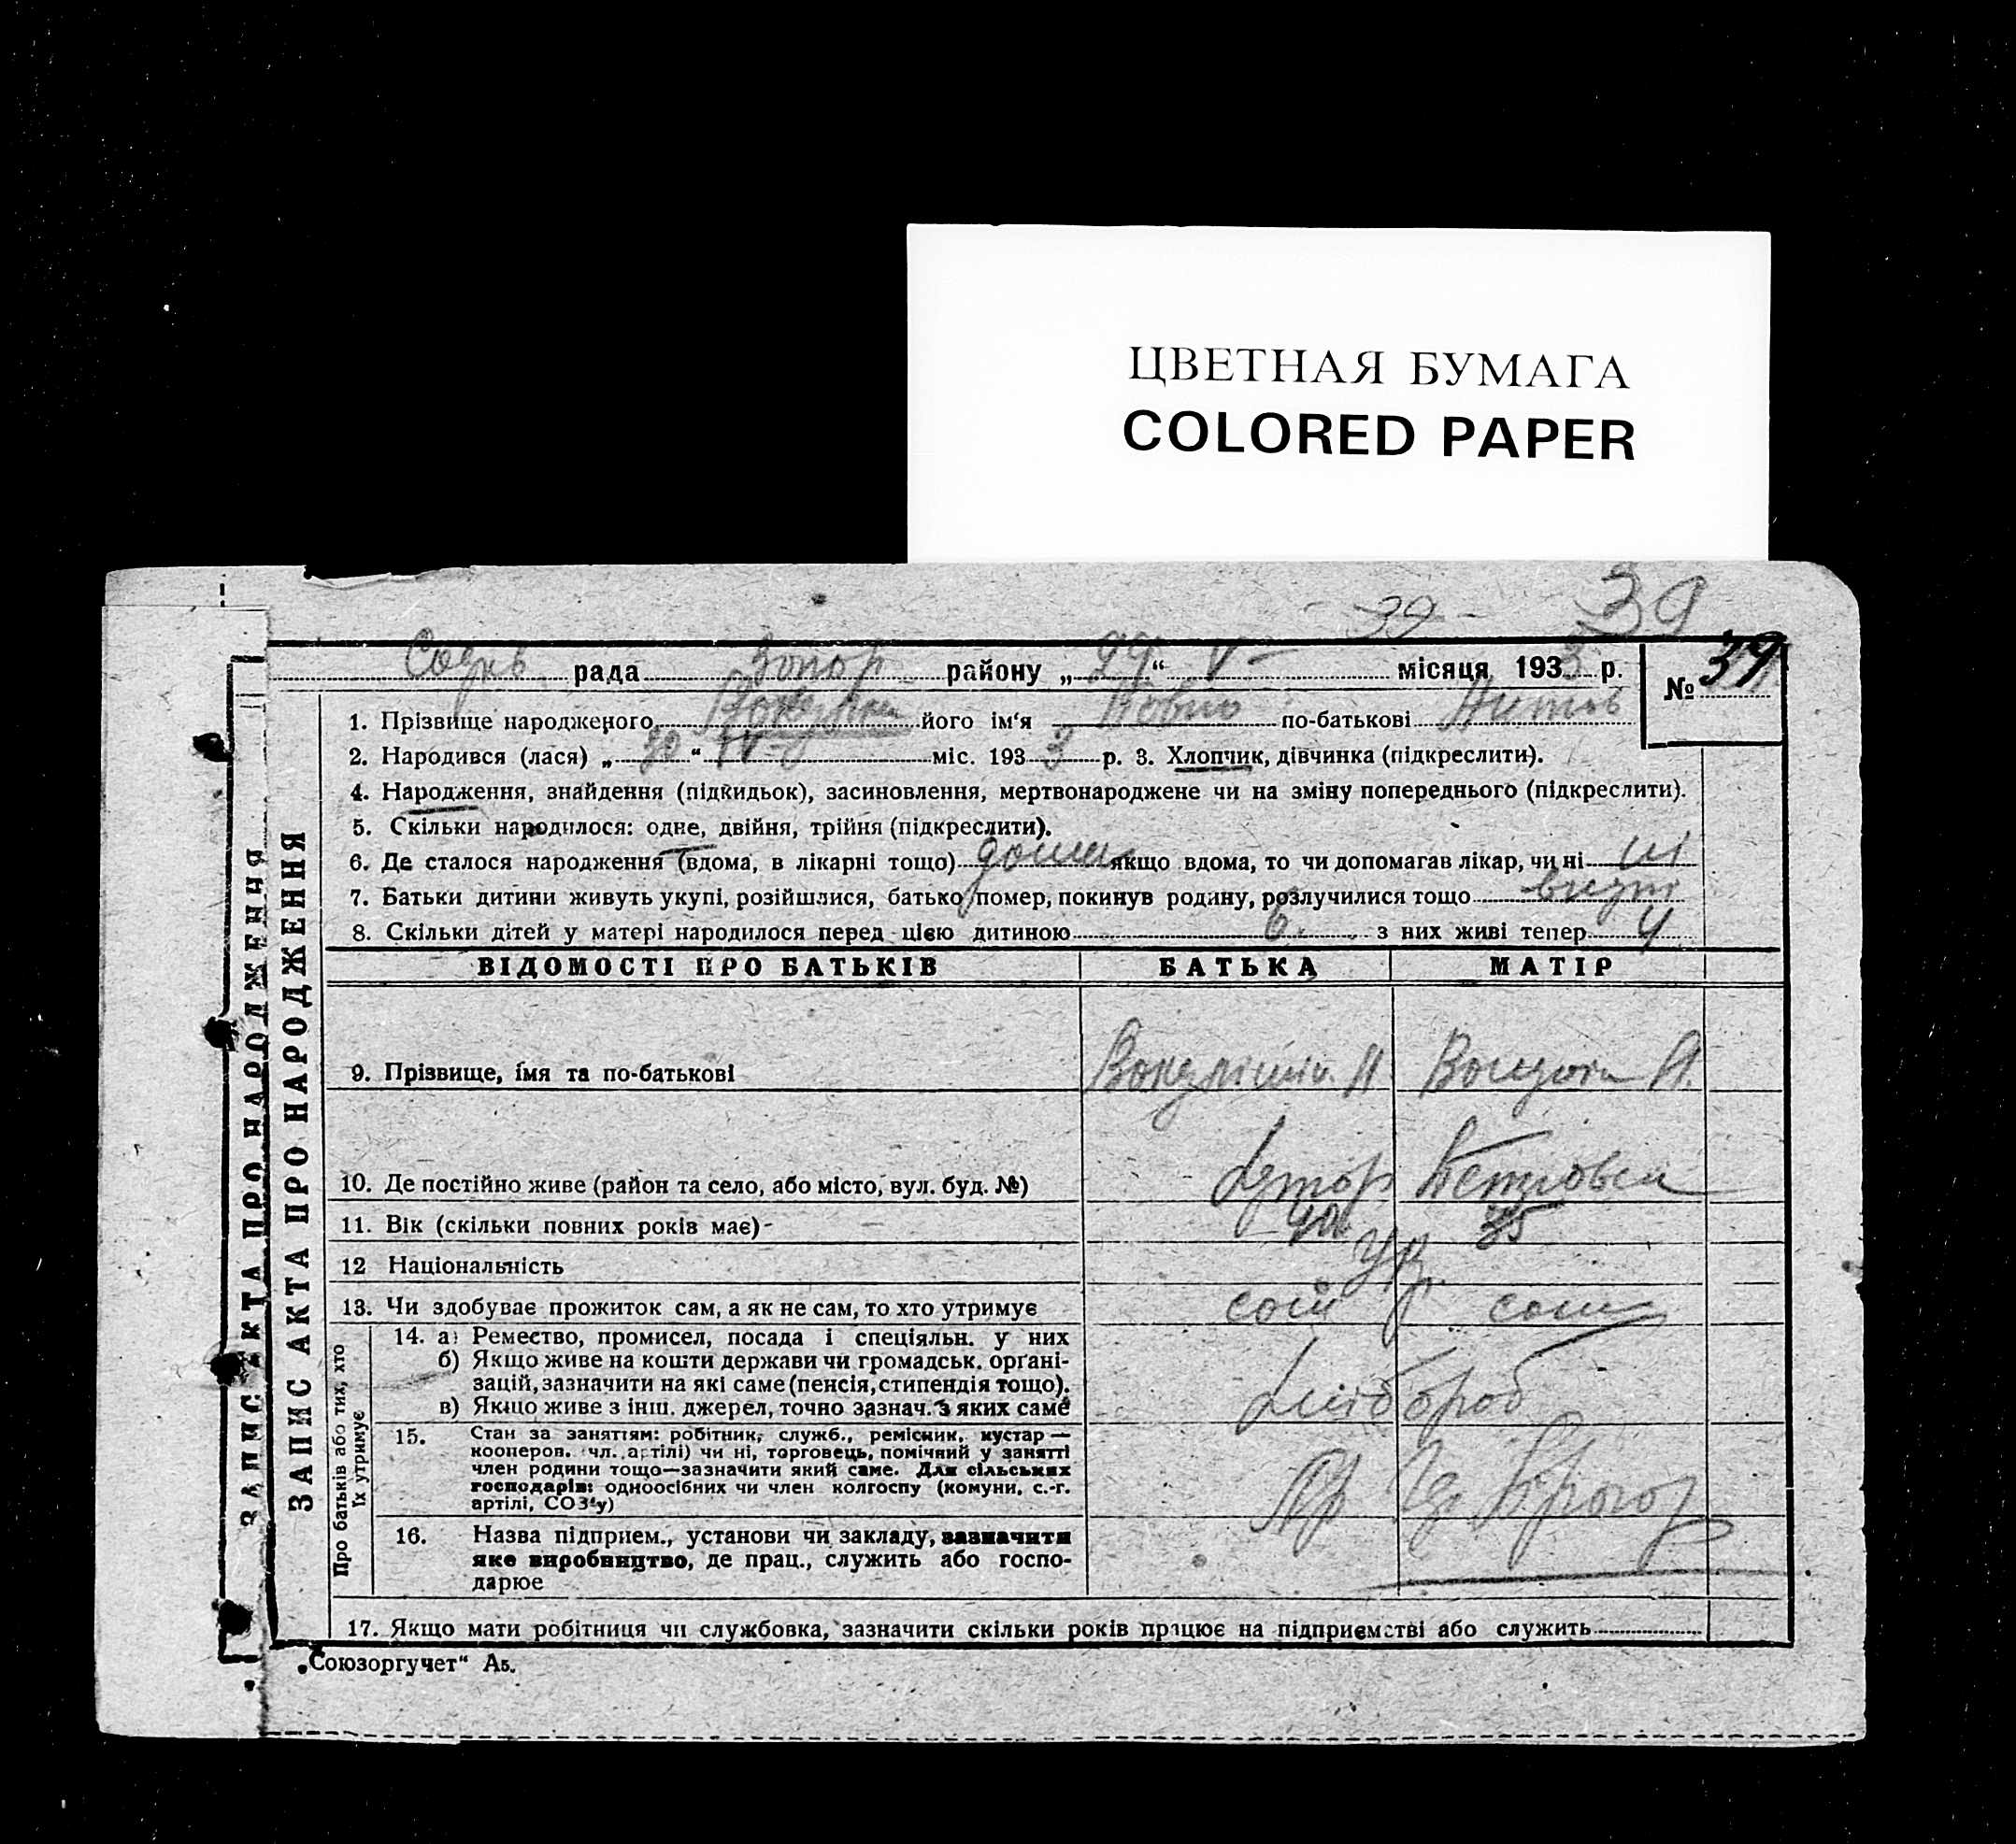 ЦВЕТНАЯ БУМАГА
COLORED PAPER
- 39 - 39
рада Запор району „ 29 “ V - місяця 1933 р. № 39
1. Прізвище народженого його ім‘я по-батькові
2. Народився (лася) „ 30 “ IV міс. 193 3 р. 3. Хлопчик, дівчинка (підкреслити).
4. Народження, знайдення (підкидьок), засиновлення, мертвонароджене чи на зміну попереднього (підкреслити).
5. Скільки народилося: одне, двійня, трійня (підкреслити).
6. Де сталося народження (вдома, в лікарні тощо) дома якщо вдома, то чи допомагав лікар, чи ні ні
7. Батьки дитини живуть укупі, розійшлися, батько помер, покинув родину, розлучилися тощо
8. Скільки дітей у матері народилося перед цією дитиною 6. з них живі тепер 4
ВІДОМОСТІ ПРО БАТЬКІВ БАТЬКА МАТІР
9. Прізвище, імя та по-батькові
10. Де постійно живе (район та село, або місто, вул. буд. №)
11. Вік (скільки повних років має) - 40 35
12 Національність укр.
13. Чи здобуває прожиток сам, а як не сам, то хто утримує сам сама
Про батьків або тих, хто їх утримує
14. а) Ремество, промисел, посада і спеціяльн. у них
б) Якщо живе на кошти держави чи громадськ. органі-
зацій, зазначити на які саме (пенсія, стипендія тощо).
в) Якщо живе з інш. джерел, точно зазнач. з яких саме
15. Стан за заняттям: робітник, служб., ремісник, кустар —
кооперов. чл. артілі) чи ні, торговець, помічний у занятті
член родини тощо—зазначити який саме. Для сільських
господарів: одноосібних чи член колгоспу (комуни, с.-г.
артілі, СОЗ‘у)
16. Назва підприєм., установи чи закладу, зазначити
яке виробництво, де прац., служить або госпо-
дарює
17. Якщо мати робітниця чи службовка, зазначити скільки років працює на підприємстві або служить
„Союзоргучет“ А5.
ЗАПИС АКТА ПРО НАРОДЖЕННЯ
ЗАПИС АКТА ПРО НАРОДЖЕННЯ